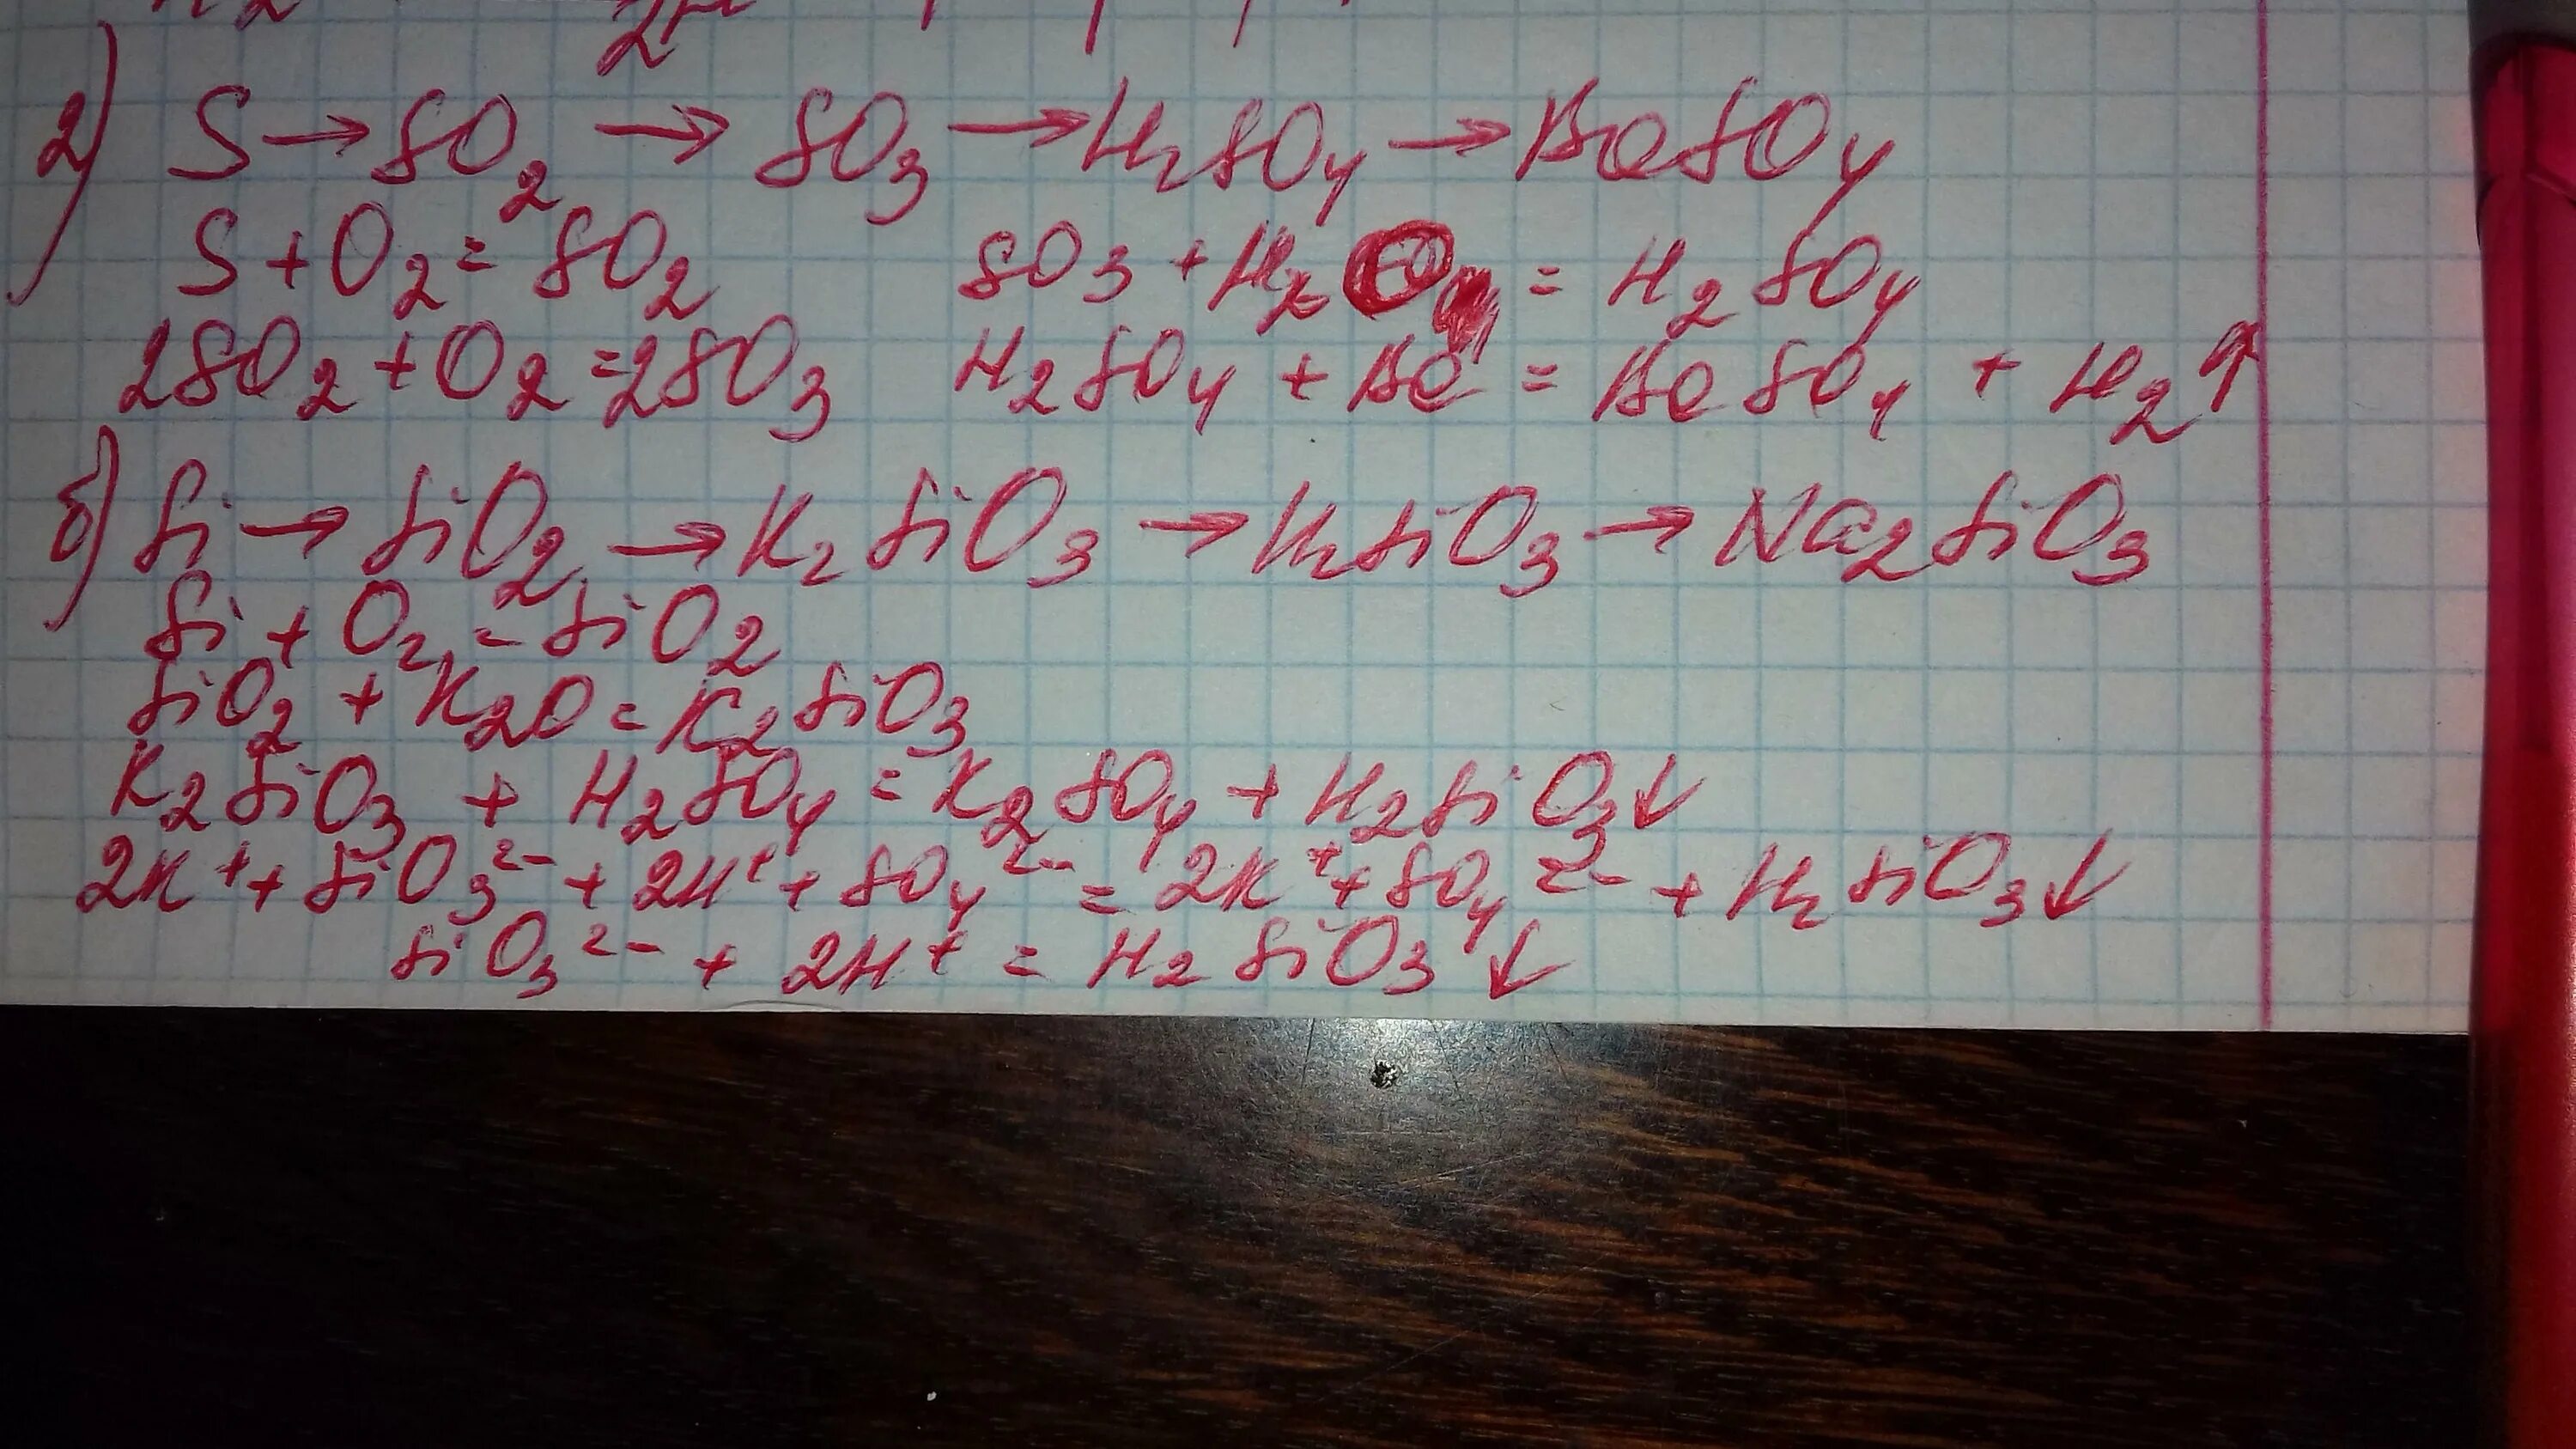 2) S → SO₂ → SO₃ → H₂SO₄ → BeSO₄
S + O₂ = SO₂ SO₃ + H₂O = H₂SO₄
2SO₂ + O₂ = 2SO₃ H₂SO₄ + Be = BeSO₄ + H₂↑
б) Si → SiO₂ → K₂SiO₃ → H₂SiO₃ → Na₂SiO₃
Si + O₂ = SiO₂
SiO₂ + K₂O = K₂SiO₃
K₂SiO₃ + H₂SO₄ = K₂SO₄ + H₂SiO₃↓
2K⁺ + SiO₃²⁻ + 2H⁺ + SO₄²⁻ = 2K⁺ + SO₄²⁻ + H₂SiO₃↓
SiO₃²⁻ + 2H⁺ = H₂SiO₃↓